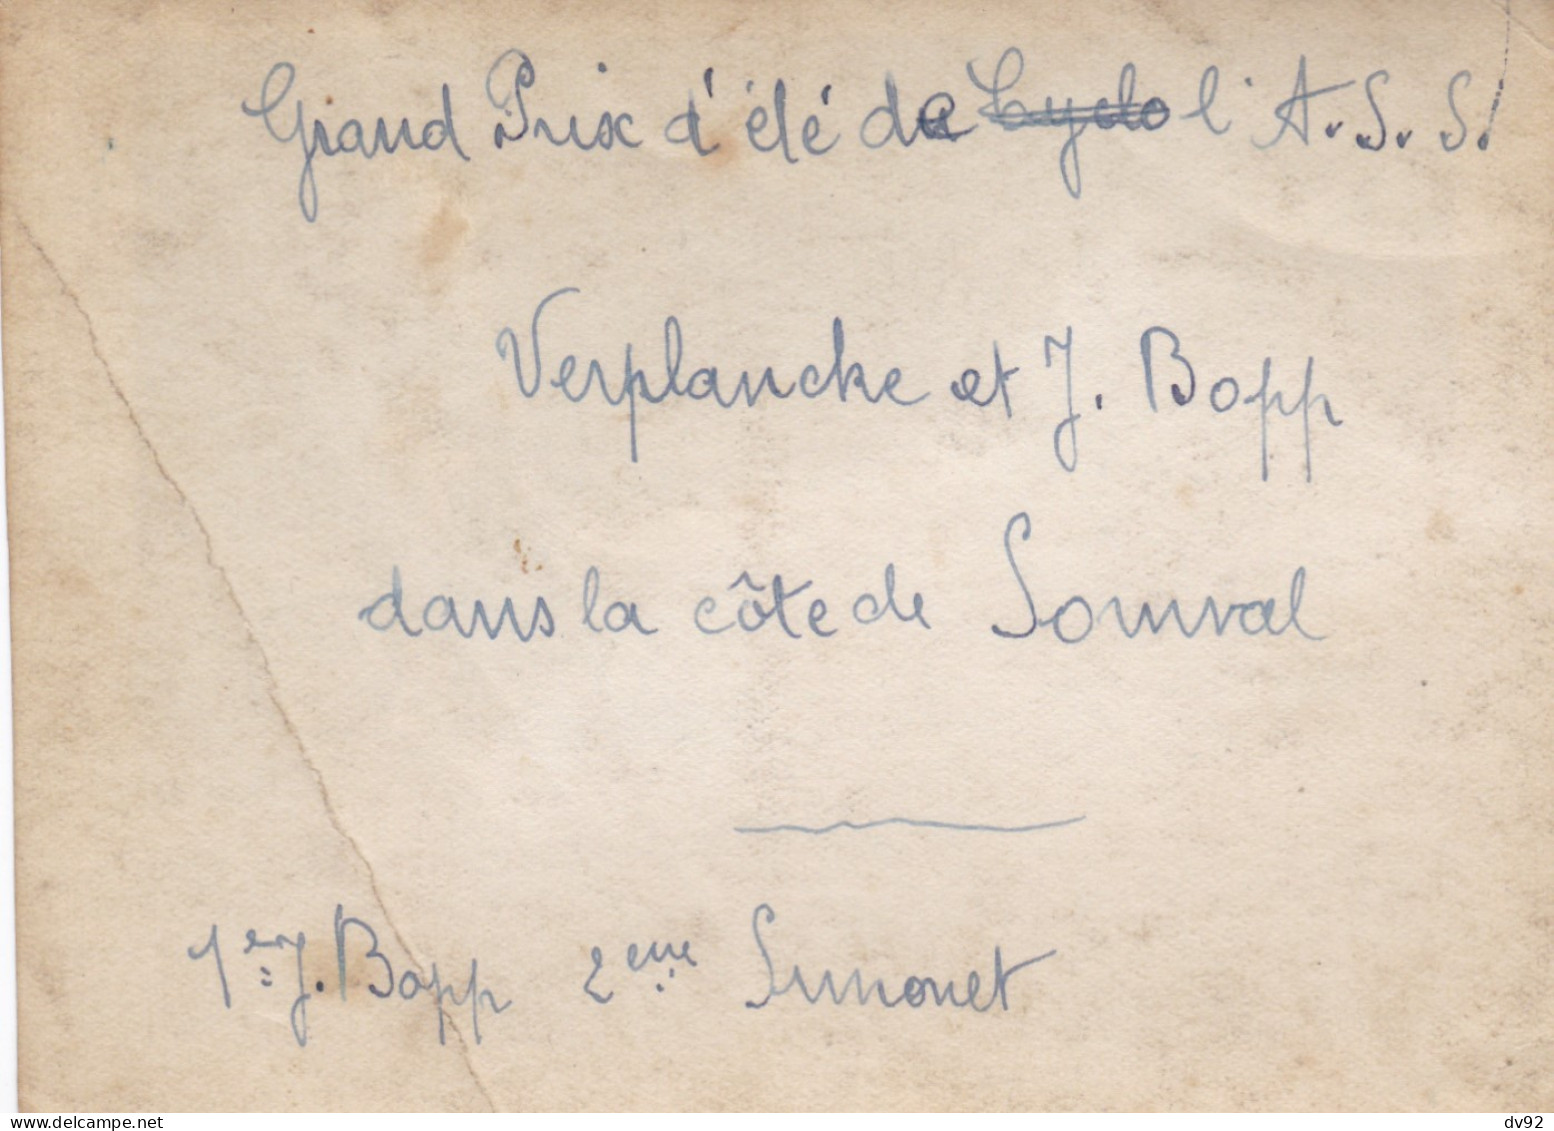 Grand Prix d'été de Cyclo l'A.S.S.
Verplancke et J. Bopp
dans la côte de Somval
1er J. Bopp 2eme Simonet
https://www.delcampe.net
dv92